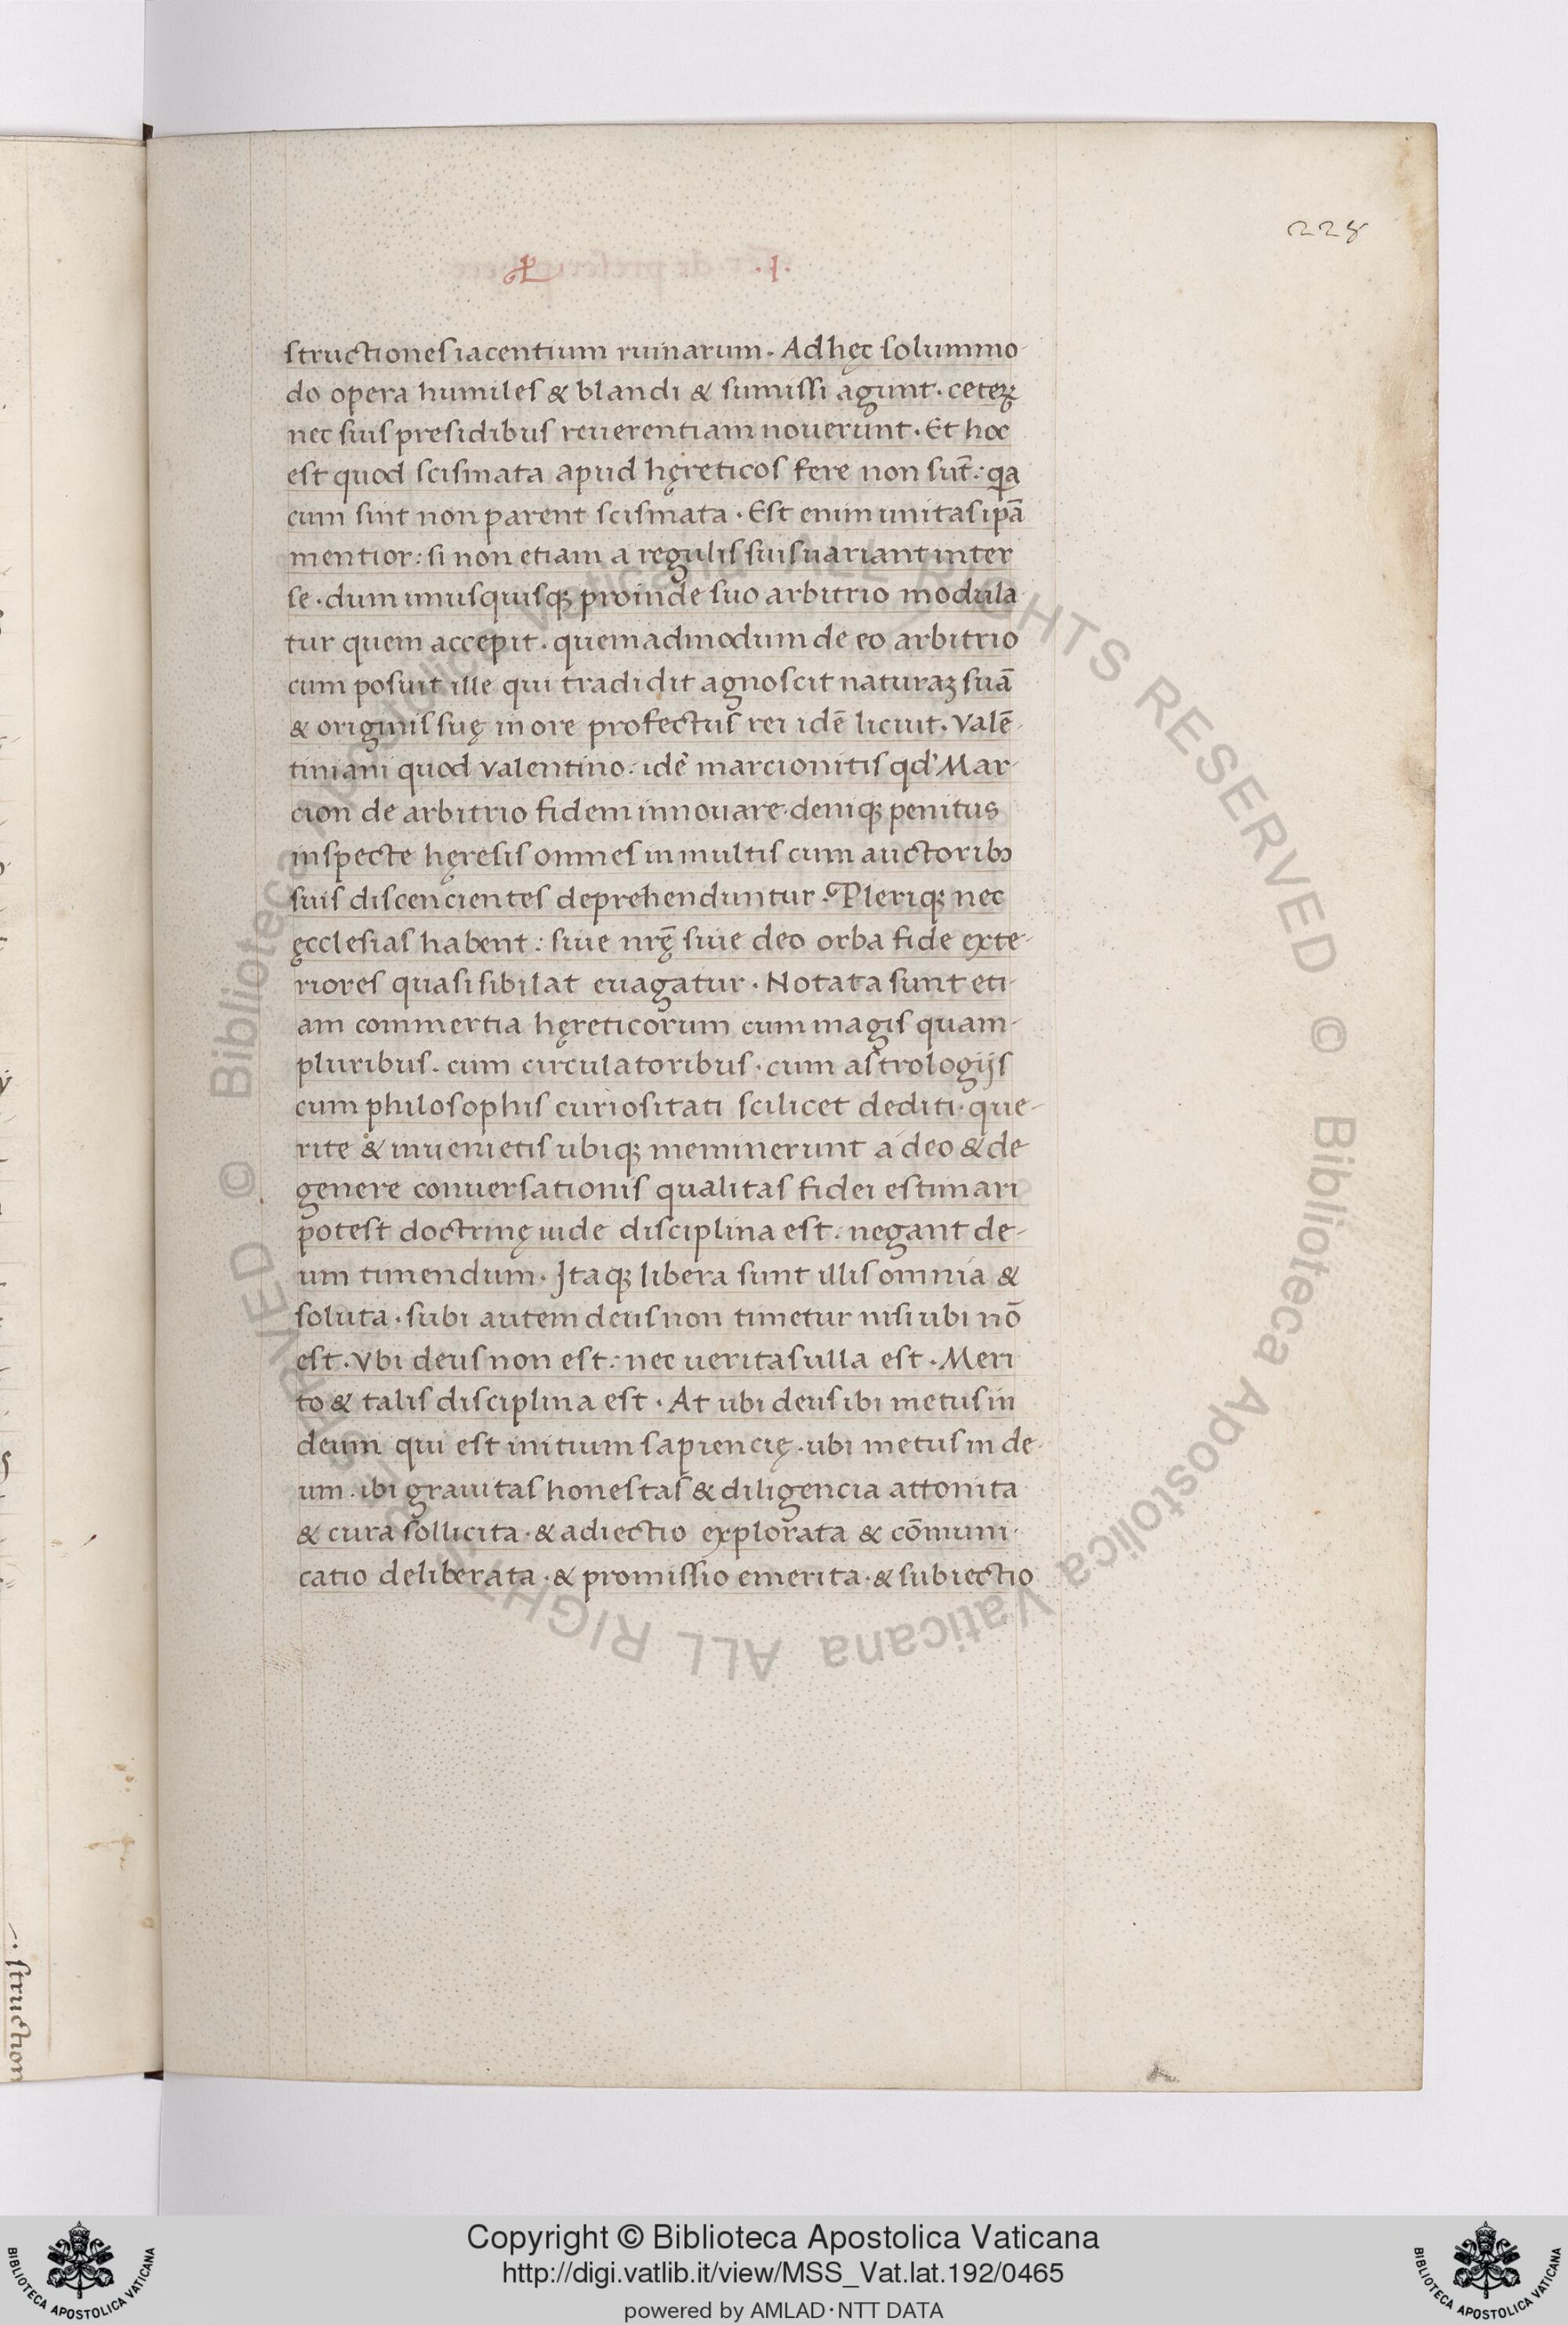 228
·I·
structiones iacentium ruinarum. Ad hęc solummo-
do opera humiles & blandi & sumissi agunt. ceteꝝ
nec suis presidibus reuerentiam nouerunt. Et hoc
est quod scismata apud hęreticos fere non sūt: qa
cum sint non parent scismata. Est enim unitas ipā
mentior: si non etiam a regulis suis uariant inter
se. dum unusquisqꝫ proinde suo arbitrio modula
tur quem accepit. quemadmodum de eo arbitrio
cum posuit ille qui tradidit agnoscit naturaꝫ suā
& originis suę more profectus rei idē licuit. Valē-
tiniani quod valentino: idē marcionitis qd' Mar-
cion de arbitrio fidem innouare. deniqꝫ penitus
inspecte hęresis omnes in multis cum auctoribꝫ
suis discencientes deprehenduntur. Pleriqꝫ nec
ęcclesias habent: siue nrę̄ siue deo orba fide exte-
riores quasi sibilat euagatur. Notata sunt eti-
am commertia hęreticorum cum magis quam-
pluribus. cum circulatoribus. cum astrologijs
cum philosophis curiositati scilicet dediti. que-
rite & inuenietis ubiqꝫ meminerunt a deo & de
genere conuersationis qualitas fidei estimari
potest doctrinę iude disciplina est: negant de-
um timendum. Itaqꝫ libera sunt illis omnia &
soluta. subi autem deus non timetur nisi ubi nō
est. Vbi deus non est: nec ueritas ulla est. Meri
to & talis disciplina est. At ubi deus ibi metus in
deum qui est initium sapiencię. ubi metus in de-
um. ibi grauitas honestas & diligencia attonita
& cura sollicita. & adiectio explorata & cōmuni-
catio deliberata. & promissio emerita. & subiectio
struction
© Biblioteca Apostolica Vaticana ALL RIGHTS RESERVED © Biblioteca Apostolica Vaticana ALL RIGHTS RESERVED
Copyright © Biblioteca Apostolica Vaticana
http://digi.vatlib.it/view/MSS_Vat.lat.192/0465
powered by AMLAD·NTT DATA
BIBLIOTECA APOSTOLICA VATICANA
BIBLIOTECA APOSTOLICA VATICANA